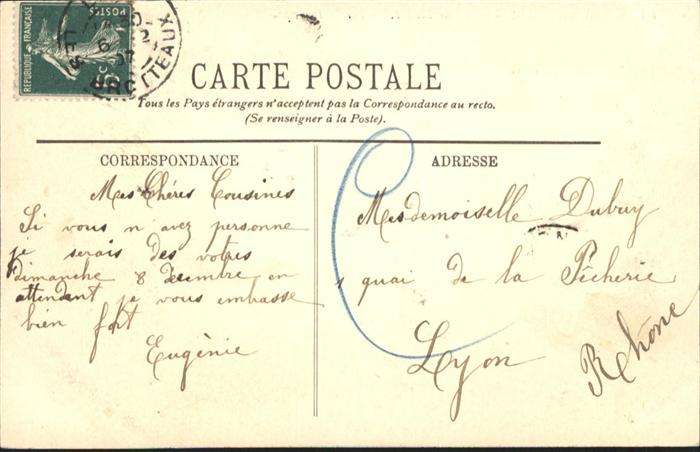 RÉPUBLIQUE FRANÇAISE
POSTES
CARTE POSTALE
Tous les Pays étrangers n'acceptent pas la Correspondance au recto.
(Se renseigner à la Poste).
CORRESPONDANCE
Mes Chéres Cousines
Si vous n avez personne
je serais des votres
dimanche 8 decembre en
attendant je vous embrasse
bien fort
Eugènie
ADRESSE
Mesdemoiselle Dubuy
1 quai de la Pêcherie
Lyon
Rhône